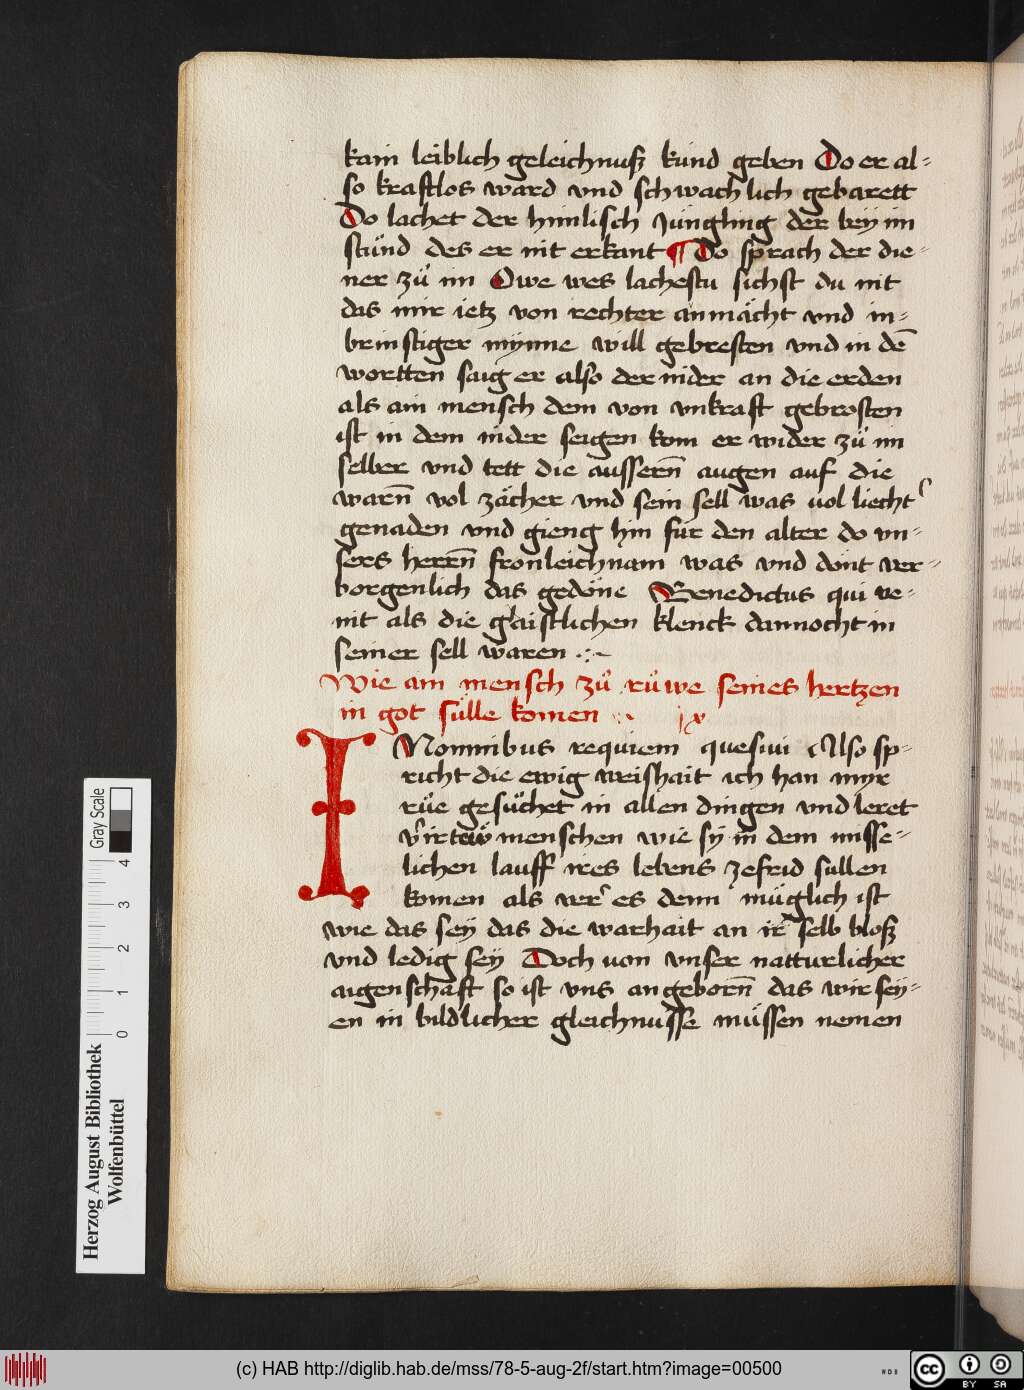 kain leiblich geleichnusz kund geben Do er al-
so kraftlos ward vnd schwachlich gebarett
Do lachet der himlisch Jüngling der bey im
stůnd des er nit erkant ¶ Do sprach der die-
ner zů im Owe wes lachestu sichst du nit
das mir ietz von rechter anmächt vnd in-
brinstiger mÿnne will gebresten vnd in dē
wortten saig er also der nider an die erden
als ain mensch dem von vnkraft gebrosten
ist in dem nider seigen kom er wider zů im
selber vnd tett die aussern̄ augen auf die
warn̄ vol zächer vnd sein sell was vol liecht
genaden vnd gieng hin für den alter do vn-
sers herrn̄ fronleichnam was vnd dönt ver-
borgenlich das gedöne Benedictus qui ve-
nit als die glaistlichen klenck dannocht in
seiner sell waren
Wie ain mensch zů růwe seines hertzen
in got sülle komen ix
INomnibus requiem quesiui Also sp-
richt die ewig weishait ich han myr
růe gesůchet in allen dingen vnd leret
menschen wie sy in dem misse-
lichen lauff ires lebens zefrid sullen
komen als ver es denn müglich ist
wie das sey das die warhait an ir selb blosz
vnd ledig sey Doch von vnser natturlicher
aigenschaft so ist vns angeborn̄ das wir sey-
en in bildlicher gleichnusse müssen nemen
Herzog August Bibliothek
Wolfenbüttel
Gray Scale
0 1 2 3 4
(c) HAB http://diglib.hab.de/mss/78-5-aug-2f/start.htm?image=00500
cc BY SA